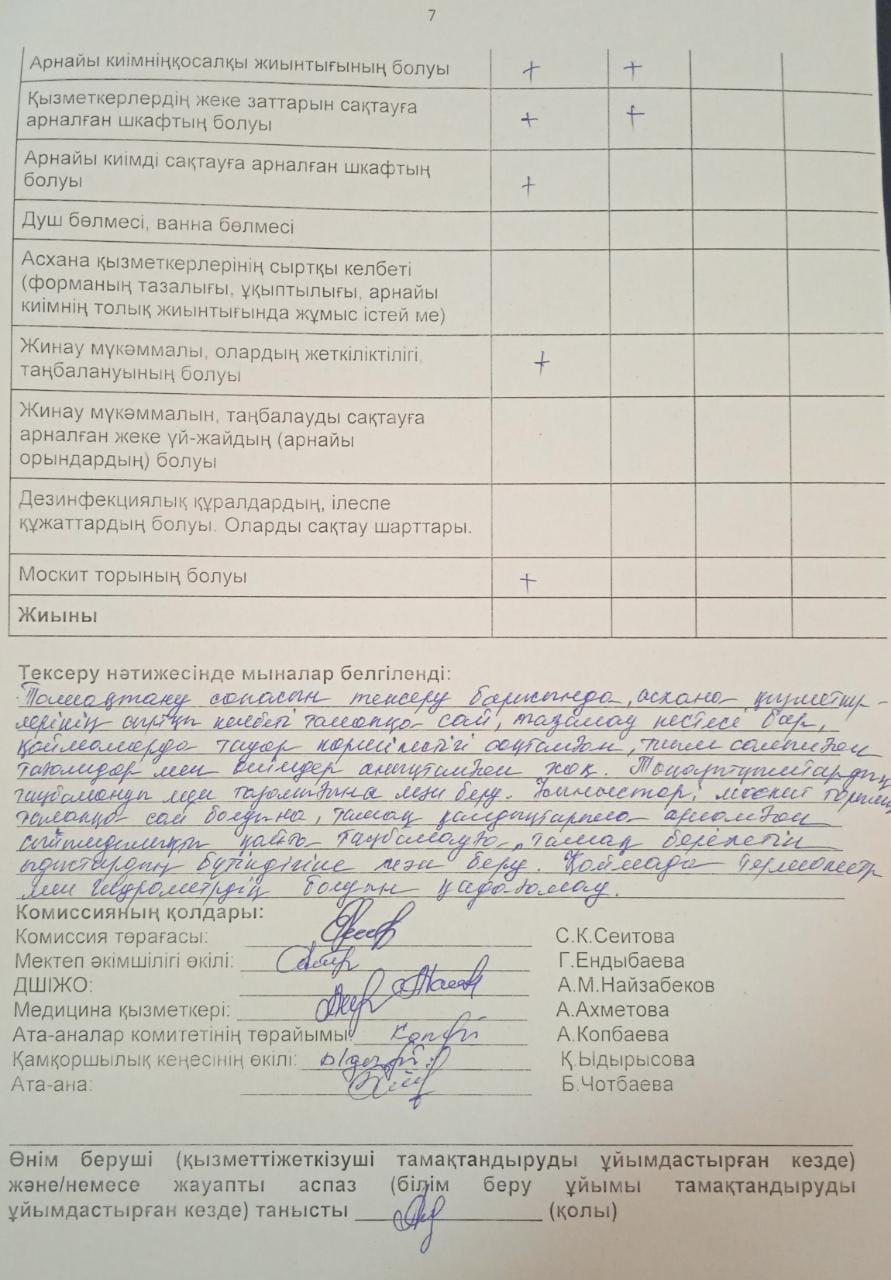 7
Арнайы киімніңқосалқы жиынтығының болуы + +
Қызметкерлердің жеке заттарын сақтауға
арналған шкафтың болуы + +
Арнайы киімді сақтауға арналған шкафтың
болуы +
Душ бөлмесі, ванна бөлмесі
Асхана қызметкерлерінің сыртқы келбеті
(форманың тазалығы, ұқыптылығы, арнайы
киімнің толық жиынтығында жұмыс істей ме)
Жинау мүкәммалы, олардың жеткіліктілігі,
таңбалануының болуы +
Жинау мүкәммалын, таңбалауды сақтауға
арналған жеке үй-жайдың (арнайы
орындардың) болуы
Дезинфекциялық құралдардың, ілеспе
құжаттардың болуы. Оларды сақтау шарттары.
Москит торының болуы +
Жиыны
Тексеру нәтижесінде мыналар белгіленді:
Тамақтану сапасын тексеру барысында, асхана қызметкер-
лерінің сыртқы келбеті талапқа сай, тазалау кестесі бар,
қоймаларда тауар көршілестігі сақталған, тыйым салынған
тағамдар мен өнімдер анықталған жоқ.
таңбалануы мен тазалығына мән беру. москит торының
талапқа сай болуына, тамақ қалдықтарына арналған
сыйымдылықты қайта таңбалауға, тамақ берілетін
ыдыстардың бүтіндігіне мән беру. Қоймада термометр
мен гигрометрдің болуын қадағалау.
Комиссияның қолдары:
Комиссия төрағасы: С.К.Сеитова
Мектеп әкімшілігі өкілі: Г.Ендыбаева
ДШІЖО: А.М.Найзабеков
Медицина қызметкері: А.Ахметова
Ата-аналар комитетінің төрайымы: А.Копбаева
Қамқоршылық кеңесінің өкілі: Қ.Ыдырысова
Ата-ана: Б.Чотбаева
Өнім беруші (қызметтіжеткізуші тамақтандыруды ұйымдастырған кезде)
және/немесе жауапты аспаз (білім беру ұйымы тамақтандыруды
ұйымдастырған кезде) танысты (қолы)